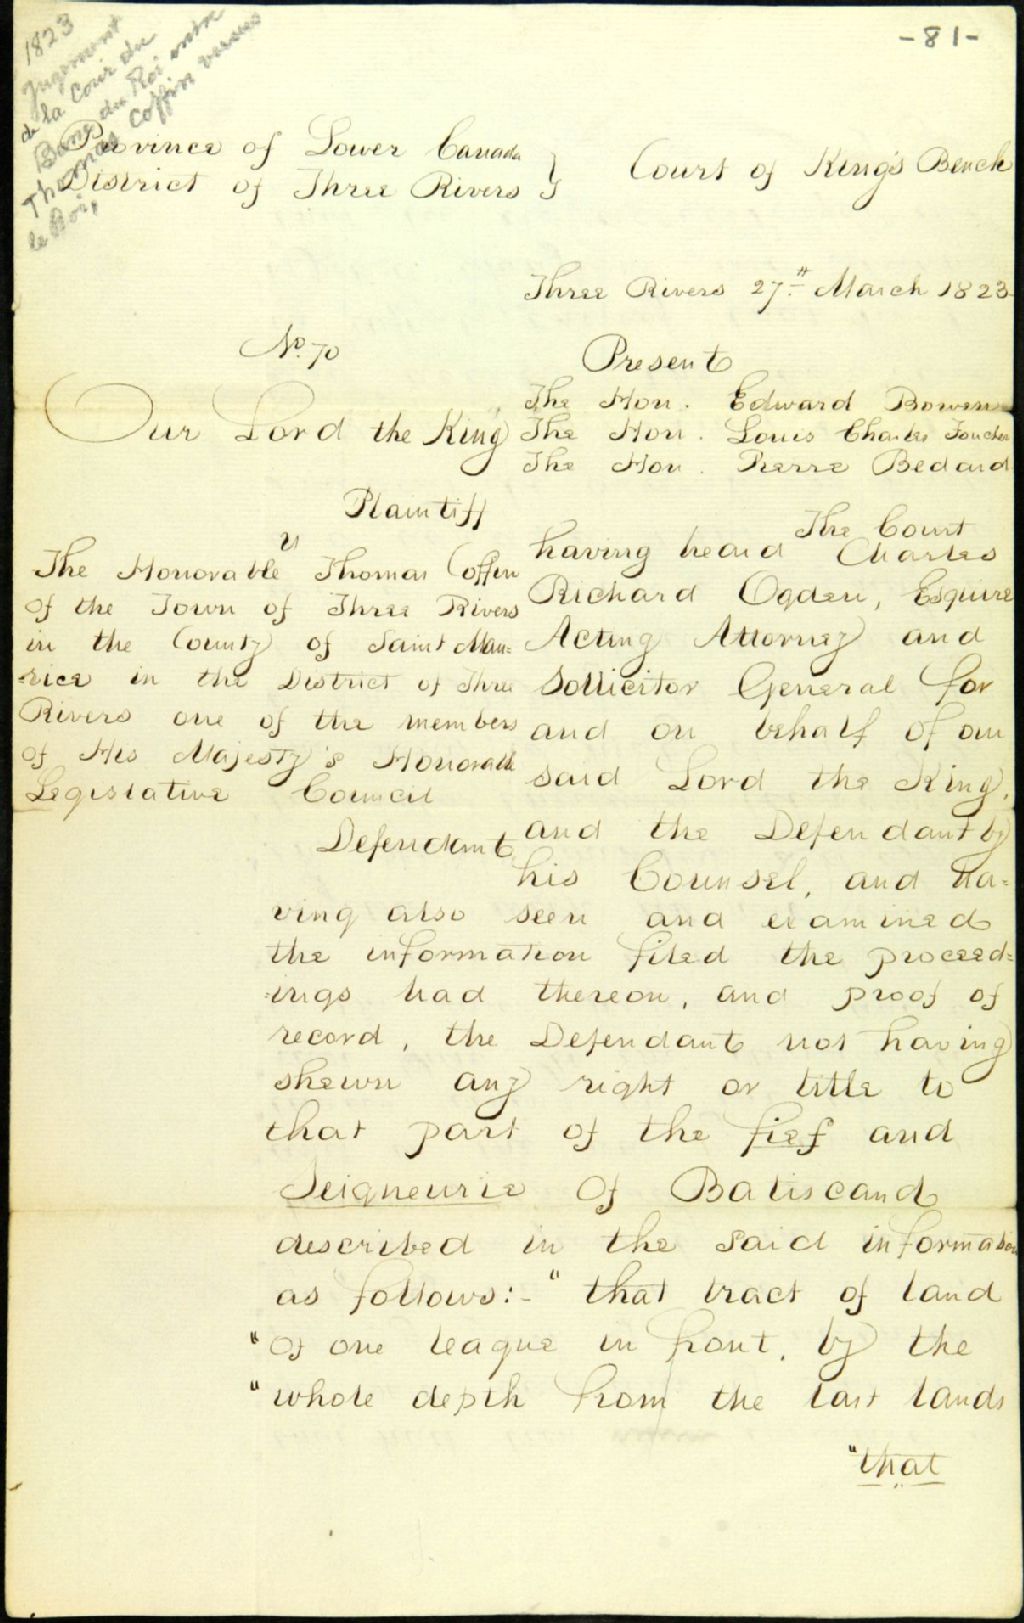 -81-
1823
Jugement
de la Cour du
Banc du Roi entre
Thomas Coffin versus
le Roi,
Province of Lower Canada
District of Three Rivers }
Court of King's Bench
Three Rivers 27th March 1823
No. 70
Our Lord the King
Plaintiff
vs
The Honorable Thomas Coffin
of the Town of Three Rivers
in the County of Saint Mau=
rice in the District of Three
Rivers one of the members
of His Majesty's Honorable
Legislative Council
Defendant
Present
The Hon. Edward Bowen
The Hon. Louis Charles Foucher
The Hon. Pierre Bedard
The Court
having heard Charles
Richard Ogden, Esquire
Acting Attorney and
Sollicitor General for
and on behalf of our
said Lord the King,
and the Defendant by
his Counsel, and ha=
ving also seen and examined
the information filed the proceed=
ings had thereon, and proof of
record, the Defendant not having
shewn any right or title to
that part of the fief and
Seigneurie of Batiscand
described in the said information
as follows:- "that tract of land
"of one league in front, by the
"whole depth from the last lands
"that